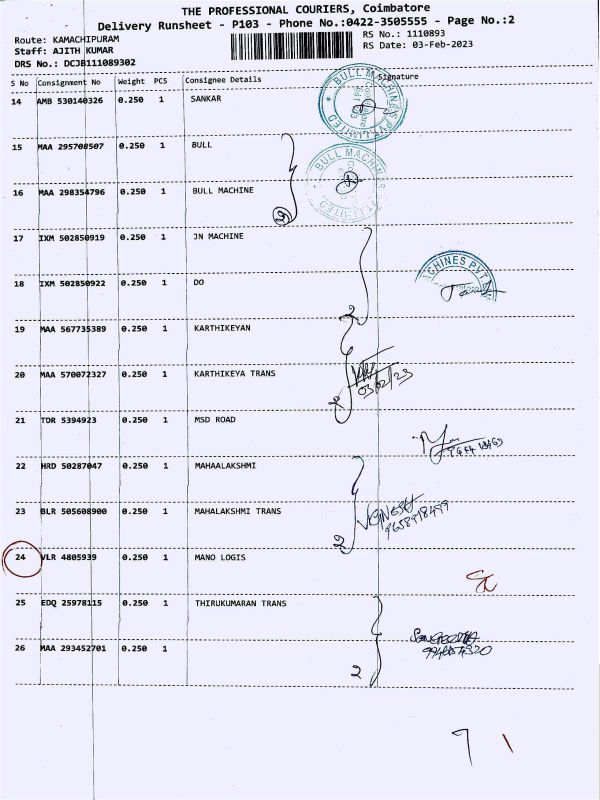 THE PROFESSIONAL COURIERS, Coimbatore
Delivery Runsheet - P103 - Phone No.:0422-3505555 - Page No.:2
Route: KAMACHIPURAM
Staff: AJITH KUMAR
DRS No.: DCJB111089302
RS No.: 1110893
RS Date: 03-Feb-2023
S No Consignment No Weight PCS Consignee Details Signature
14 AMB 530140326 0.250 1 SANKAR
BULL MACHINES PVT LIMITED
15 MAA 295708507 0.250 1 BULL
16 MAA 298354796 0.250 1 BULL MACHINE
BULL MACHI
LIMITED
17 IXM 502850919 0.250 1 JN MACHINE
18 IXM 502850922 0.250 1 DO
ACHINES PVT
2
19 MAA 567735389 0.250 1 KARTHIKEYAN
20 MAA 570072327 0.250 1 KARTHIKEYA TRANS
03/02/23
2
21 TDR 5394923 0.250 1 MSD ROAD
22 HRD 50287047 0.250 1 MAHAALAKSHMI
23 BLR 505608900 0.250 1 MAHALAKSHMI TRANS
2
24 VLR 4805939 0.250 1 MANO LOGIS
25 EDQ 25978115 0.250 1 THIRUKUMARAN TRANS
26 MAA 293452701 0.250 1
2
7